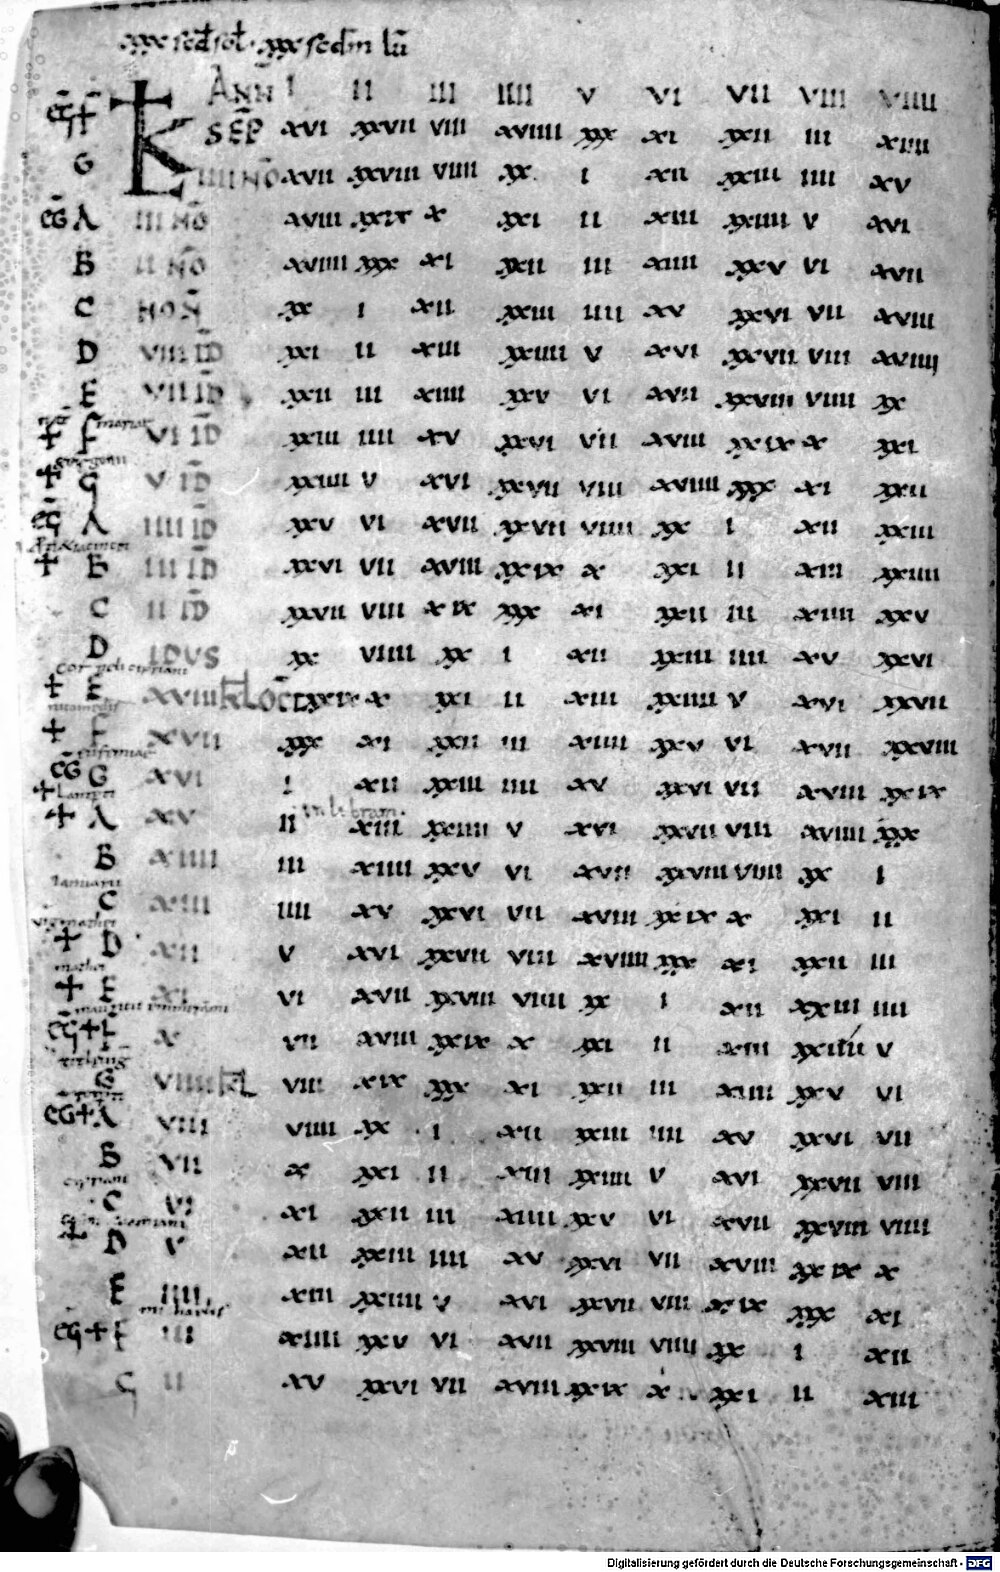 xxx sed sol · xxx sedm lū
Anñ I II III IIII V VI VII VIII VIIII
K SEP xvi xxvii viii xviiii xxx xi xxii iii xiiii
G IIII NO xvii xxviii viiii xx i xii xxiii iiii xv
eg A III NO xviii xxix x xxi ii xiii xxiiii v xvi
B II NO xviiii xxx xi xxii iii xiiii xxv vi xvii
C NON xx i xii xxiii iiii xv xxvi vii xviii
D VIII ID xxi ii xiii xxiiii v xvi xxvii viii xviiii
E VII ID xxii iii xiiii xxv vi xvii xxviii viiii xx
mariae
+ F VI ID xxiii iiii xv xxvi vii xviii xxix x xxi
+ G V ID xxiiii v xvi xxvii viii xviiii xxx xi xxii
eg A IIII ID xxv vi xvii xxvii viiii xx i xii xxiii
+ B III ID xxvi vii xviii xxix x xxi ii xiii xxiiii
C II ID xxvii viii xix xxx xi xxii iii xiiii xxv
D IDUS xx viiii xx i xii xxiii iiii xv xxvi
cor
+ E XVIII KL OCT xxix x xxi ii xiii xxiiii v xvi xxvii
nicomedis
+ F XVII xxx xi xxii iii xiiii xxv vi xvii xxviii
eg G XVI i xii xxiii iiii xv xxvi vii xviii xxix
in libram.
+ A XV ii xiii xxiiii v xvi xxvii viii xviiii xxx
B XIIII iii xiiii xxv vi xvii xxviii viiii xx i
Ianuarii
C XIII iiii xv xxvi vii xviii xxix x xxi ii
+ D XII v xvi xxvii viii xviiii xxx xi xxii iii
mathei
+ E XI vi xvii xxviii viiii xx i xii xxiii iiii
eg + F X vii xviii xxix x xxi ii xiii xxiiii v
G VIIII KL viii xix xxx xi xxii iii xiiii xxv vi
eg + A VIII viiii xx i xii xxiii iiii xv xxvi vii
B VII x xxi ii xiii xxiiii v xvi xxvii viii
cypriani
C VI xi xxii iii xiiii xxv vi xvii xxviii viiii
+ D V xii xxiii iiii xv xxvi vii xviii xxix x
E IIII xiii xxiiii v xvi xxvii viii xix xxx xi
eg + F III xiiii xxv vi xvii xxviii viiii xx i xii
G II xv xxvi vii xviii xxix x xxi ii xiii
Digitalisierung gefördert durch die Deutsche Forschungsgemeinschaft - DFG